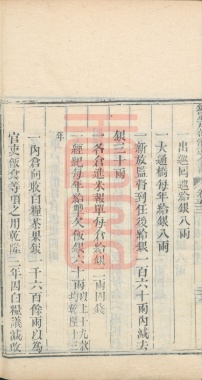 出巡回避給銀八兩
一大通橋每年給銀八兩
一新放監督到任後給銀一百六十兩內減去
銀三十兩
一各倉進米報單每倉給銀二兩四錢
一經紀每年給車欠飯銀六十兩以上十九款均乾隆十三
年
一內倉向收白糧茶果銀一千六百餘兩以爲
官吏飯食等項之用乾隆二年因白糧議減收